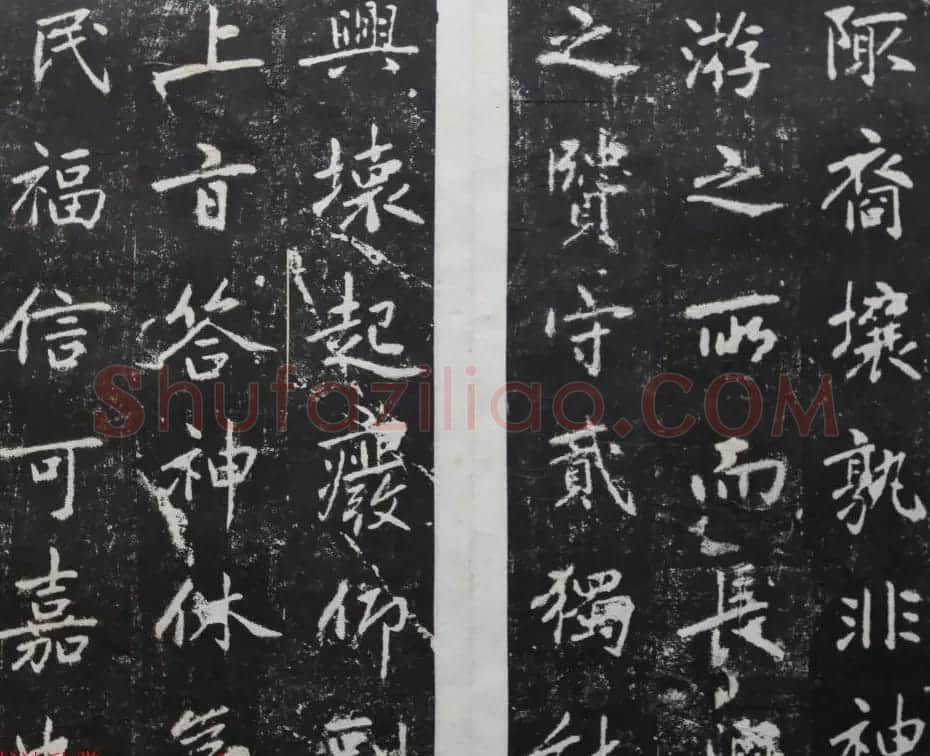 陬裔壤孰非神
游之所而長
之贒守貳獨
興壞起癈仰副
上旨答神休
民福信可嘉
Shufaziliao.COM